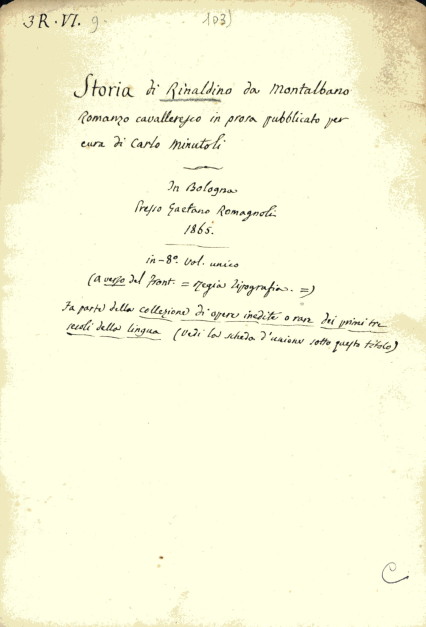 3R.VI. 9. 103)
Storia di Rinaldino da Montalbano
Romanzo cavalleresco in prosa pubblicato per
cura di Carlo Minutoli
In Bologna
Presso Gaetano Romagnoli
1865.
in-8º. Vol. unico
(a verso del front. = Regia Tipografia. =)
Fa parte della collezione di opere inedite o rare dei primi tre
secoli della lingua (Vedi la scheda d'unione sotto questo titolo)
C